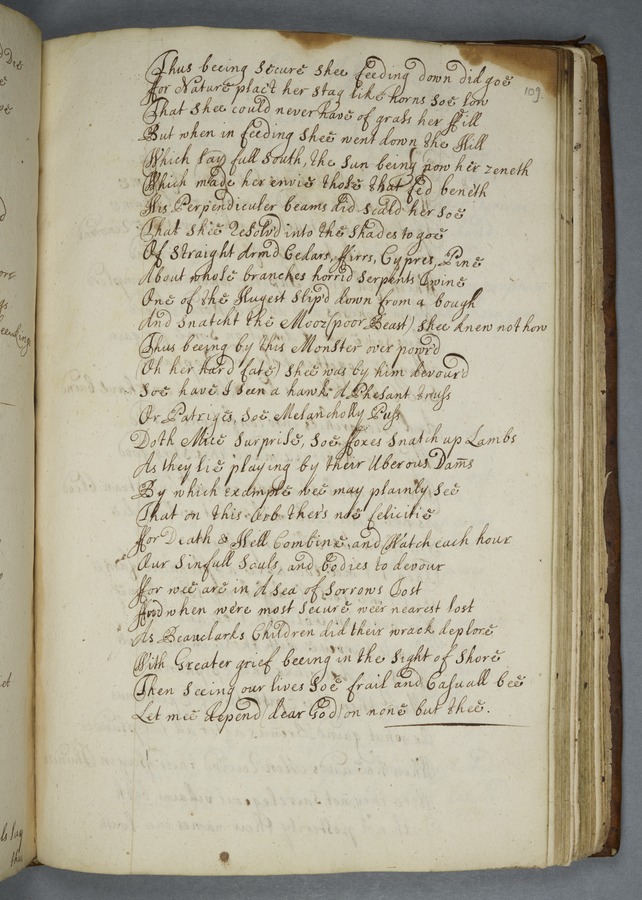 109
Thus beeing secure shee feeding down did goe
ffor Nature plac't her stag like horns soe low
That shee could never have of grass her ffill
But when in feeding shee went down the Hill
Which lay full South, the sun being now her zeneth
Which made her envie those that fed beneth
His Perpendiculer beams did scald her soe
That shee resolv'd into the shades to goe
Of straight Arm'd Cedars, ffirrs, Cypres, Pine
About whose branches horrid serpents Twine
One of the Hugest slip'd down from a bough
And snatcht the Mooz (poor Beast) shee knew not how
Thus beeing by this Monster over powrd
(Oh her hard fate) shee was by him devour'd
Soe have I seen a hawk A Phesant truss
Or Patriges, soe Melancholly Puss
Doth Mice surprise, soe ffoxes snatch up Lambs
As they lie playing by their Uberous Dam̄s
By which example wee may plainly see
That on this Orb ther's noe felicitie
ffor Death & Hell Combine, and Watch each hour
Our Sinfull Souls, and bodies to devour
ffor wee are in A sea of Sorrows Tost
And when wére most secure weér nearest lost
As Beauclarks Children did their wrack deplore
With Greater grief beeing in the sight of shore
Then seeing our lives soe frail and Casuall bee
Let mee depend (dear God) on none but thee.